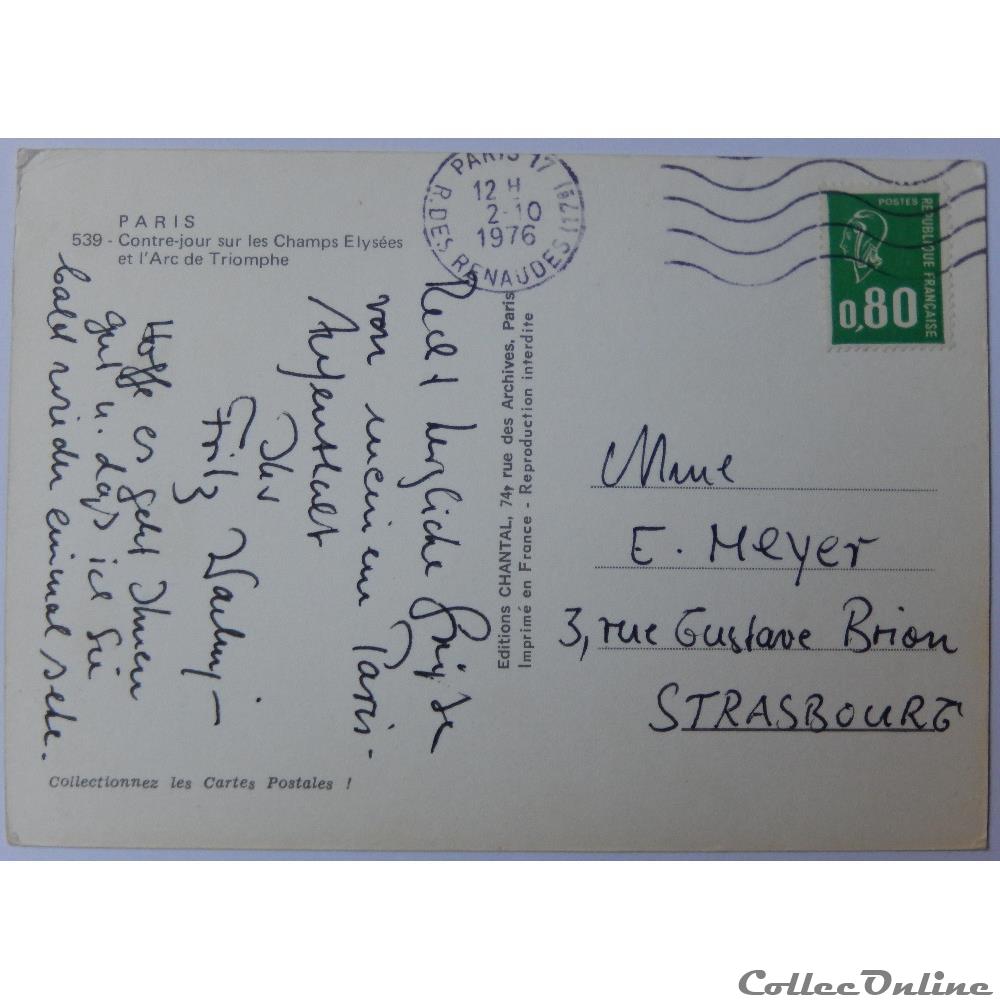 PARIS
539 - Contre-jour sur les Champs Elysées
et l'Arc de Triomphe
PARIS 17
12 H
2-10
1976
R. DES RENAUDES (17e)
POSTES
RÉPUBLIQUE FRANÇAISE
0,80
Recht herzliche Grüsse
von meinem Paris-
Aufenthalt
Ihr
Fritz
Hoffe es geht Ihnen
gut u. dass ich Sie
bald wieder einmal sehe.
Editions CHANTAL, 74, rue des Archives, Paris
Imprimé en France - Reproduction interdite
Mme
E. Meyer
3, rue Gustave Brion
STRASBOURG
Collectionnez les Cartes Postales !
CollecOnline